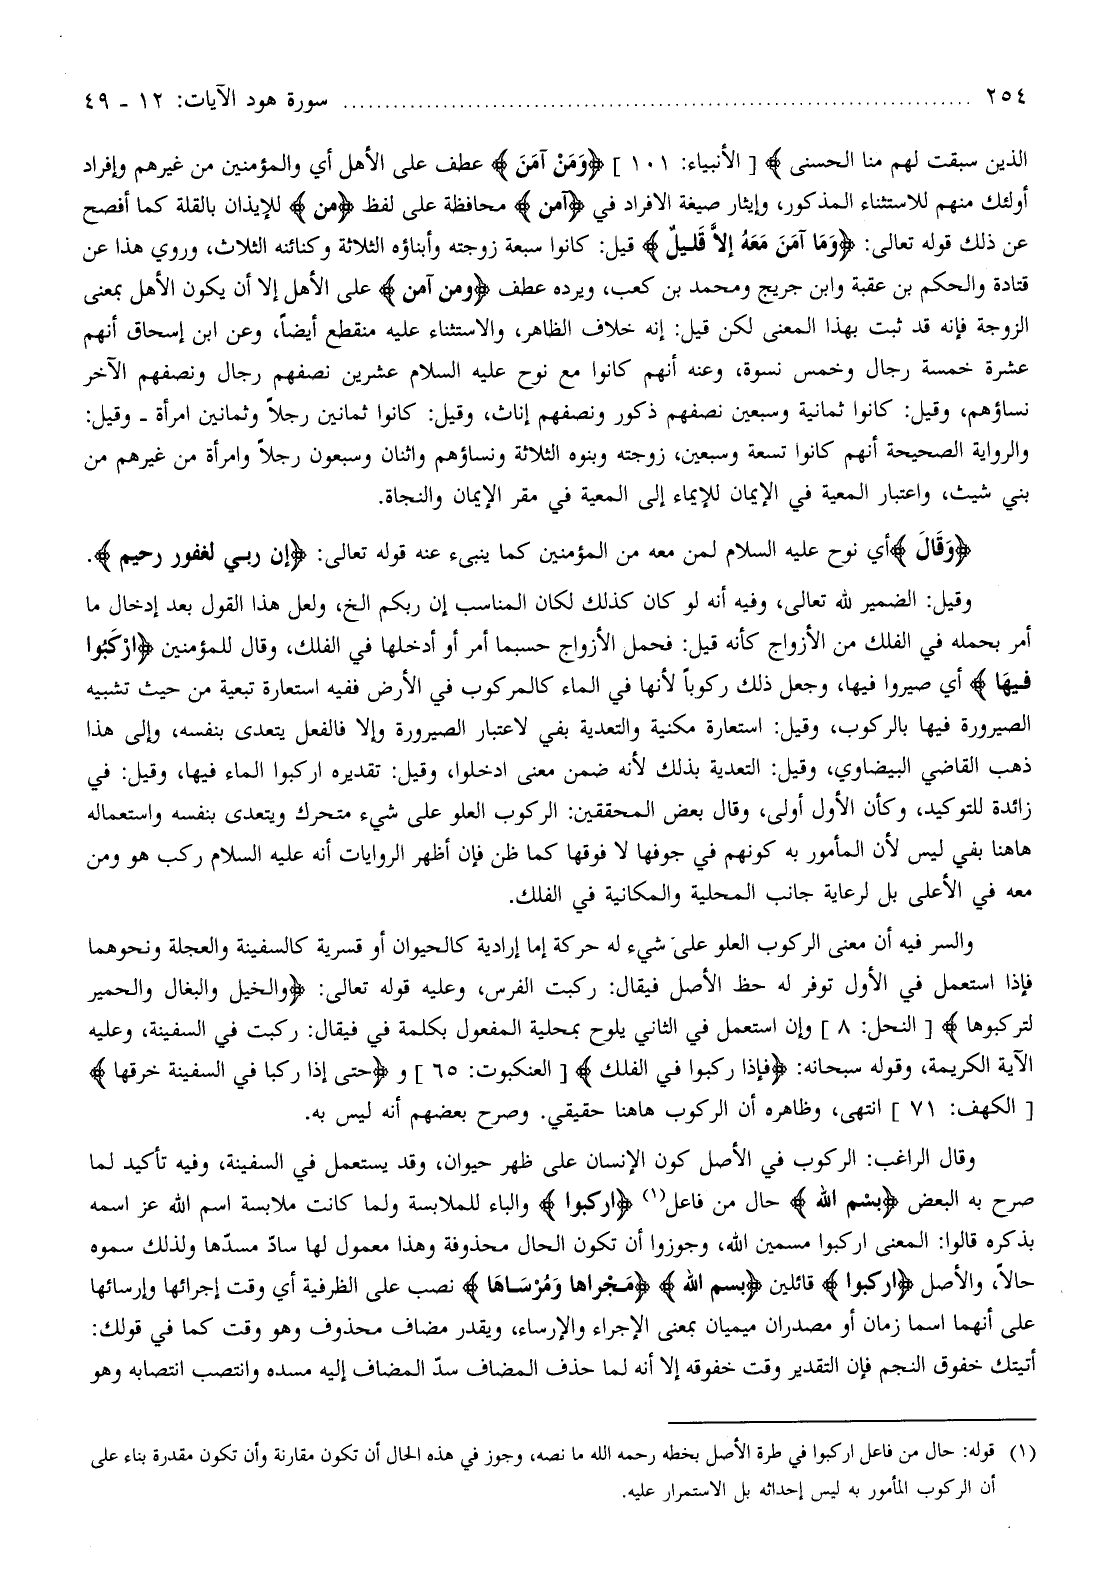 ٢٥٤ ........................................ سورة هود الآيات: ١٢ - ٤٩
الذين سبقت لهم منا الحسنى ﴾ [ الأنبياء: ١٠١ ] ﴿وَمَنْ آمَنَ ﴾ عطف على الأهل أي والمؤمنين من غيرهم وإفراد
أولئك منهم للاستثناء المذكور، وإيثار صيغة الافراد في ﴿آمن ﴾ محافظة على لفظ ﴿من ﴾ للإيذان بالقلة كما أفصح
عن ذلك قوله تعالى: ﴿وَمَا آمَنَ مَعَهُ إلاَّ قَلِيلٌ ﴾ قيل: كانوا سبعة زوجته وأبناؤه الثلاثة وكنائنه الثلاث، وروي هذا عن
قتادة والحكم بن عقبة وابن جريج ومحمد بن كعب، ويرده عطف ﴿ومن آمن ﴾ على الأهل إلا أن يكون الأهل بمعنى
الزوجة فإنه قد ثبت بهذا المعنى لكن قيل: إنه خلاف الظاهر، والاستثناء عليه منقطع أيضاً، وعن ابن إسحاق أنهم
عشرة خمسة رجال وخمس نسوة، وعنه أنهم كانوا مع نوح عليه السلام عشرين نصفهم رجال ونصفهم الآخر
نساؤهم، وقيل: كانوا ثمانية وسبعين نصفهم ذكور ونصفهم إناث، وقيل: كانوا ثمانين رجلاً وثمانين امرأة ـ وقيل:
والرواية الصحيحة أنهم كانوا تسعة وسبعين، زوجته وبنوه الثلاثة ونساؤهم واثنان وسبعون رجلاً وامرأة من غيرهم من
بني شيث، واعتبار المعية في الإيمان للإيماء إلى المعية في مقر الإيمان والنجاة.
﴿وَقَالَ ﴾أي نوح عليه السلام لمن معه من المؤمنين كما ينبىء عنه قوله تعالى: ﴿إن ربي لغفور رحيم ﴾.
وقيل: الضمير لله تعالى، وفيه أنه لو كان كذلك لكان المناسب إن ربكم الخ، ولعل هذا القول بعد إدخال ما
أمر بحمله في الفلك من الأزواج كأنه قيل: فحمل الأزواج حسبما أمر أو أدخلها في الفلك، وقال للمؤمنين ﴿ارْكَبُوا
فِيهَا ﴾ أي صيروا فيها، وجعل ذلك ركوباً لأنها في الماء كالمركوب في الأرض ففيه استعارة تبعية من حيث تشبيه
الصيرورة فيها بالركوب، وقيل: استعارة مكنية والتعدية بفي لاعتبار الصيرورة وإلا فالفعل يتعدى بنفسه، وإلى هذا
ذهب القاضي البيضاوي، وقيل: التعدية بذلك لأنه ضمن معنى ادخلوا، وقيل: تقديره اركبوا الماء فيها، وقيل: في
زائدة للتوكيد، وكأن الأول أولى، وقال بعض المحققين: الركوب العلو على شيء متحرك ويتعدى بنفسه واستعماله
هاهنا بفي ليس لأن المأمور به كونهم في جوفها لا فوقها كما ظن فإن أظهر الروايات أنه عليه السلام ركب هو ومن
معه في الأعلى بل لرعاية جانب المحلية والمكانية في الفلك.
والسر فيه أن معنى الركوب العلو على شيء له حركة إما إرادية كالحيوان أو قسرية كالسفينة والعجلة ونحوهما
فإذا استعمل في الأول توفر له حظ الأصل فيقال: ركبت الفرس، وعليه قوله تعالى: ﴿والخيل والبغال والحمير
لتركبوها ﴾ [ النحل: ٨ ] وإن استعمل في الثاني يلوح بمحلية المفعول بكلمة في فيقال: ركبت في السفينة، وعليه
الآية الكريمة، وقوله سبحانه: ﴿فإذا ركبوا في الفلك ﴾ [ العنكبوت: ٦٥ ] و ﴿حتى إذا ركبا في السفينة خرقها ﴾
[ الكهف: ٧١ ] انتهى، وظاهره أن الركوب هاهنا حقيقي. وصرح بعضهم أنه ليس به.
وقال الراغب: الركوب في الأصل كون الإنسان على ظهر حيوان، وقد يستعمل في السفينة، وفيه تأكيد لما
صرح به البعض ﴿بسْم الله ﴾ حال من فاعل(١) ﴿اركبوا ﴾ والباء للملابسة ولما كانت ملابسة اسم الله عز اسمه
بذكره قالوا: المعنى اركبوا مسمين الله، وجوزوا أن تكون الحال محذوفة وهذا معمول لها سادّ مسدّها ولذلك سموه
حالاً، والأصل ﴿اركبوا ﴾ قائلين ﴿بسم الله ﴾ ﴿مَجْراها وَمُرْسَاهَا ﴾ نصب على الظرفية أي وقت إجرائها وإرسائها
على أنهما اسما زمان أو مصدران ميميان بمعنى الإجراء والإرساء، ويقدر مضاف محذوف وهو وقت كما في قولك:
أتيتك خفوق النجم فإن التقدير وقت خفوقه إلا أنه لما حذف المضاف سدّ المضاف إليه مسده وانتصب انتصابه وهو
(١) قوله: حال من فاعل اركبوا في طرة الأصل بخطه رحمه الله ما نصه، وجوز في هذه الحال أن تكون مقارنة وأن تكون مقدرة بناء على
أن الركوب المأمور به ليس إحداثه بل الاستمرار عليه.